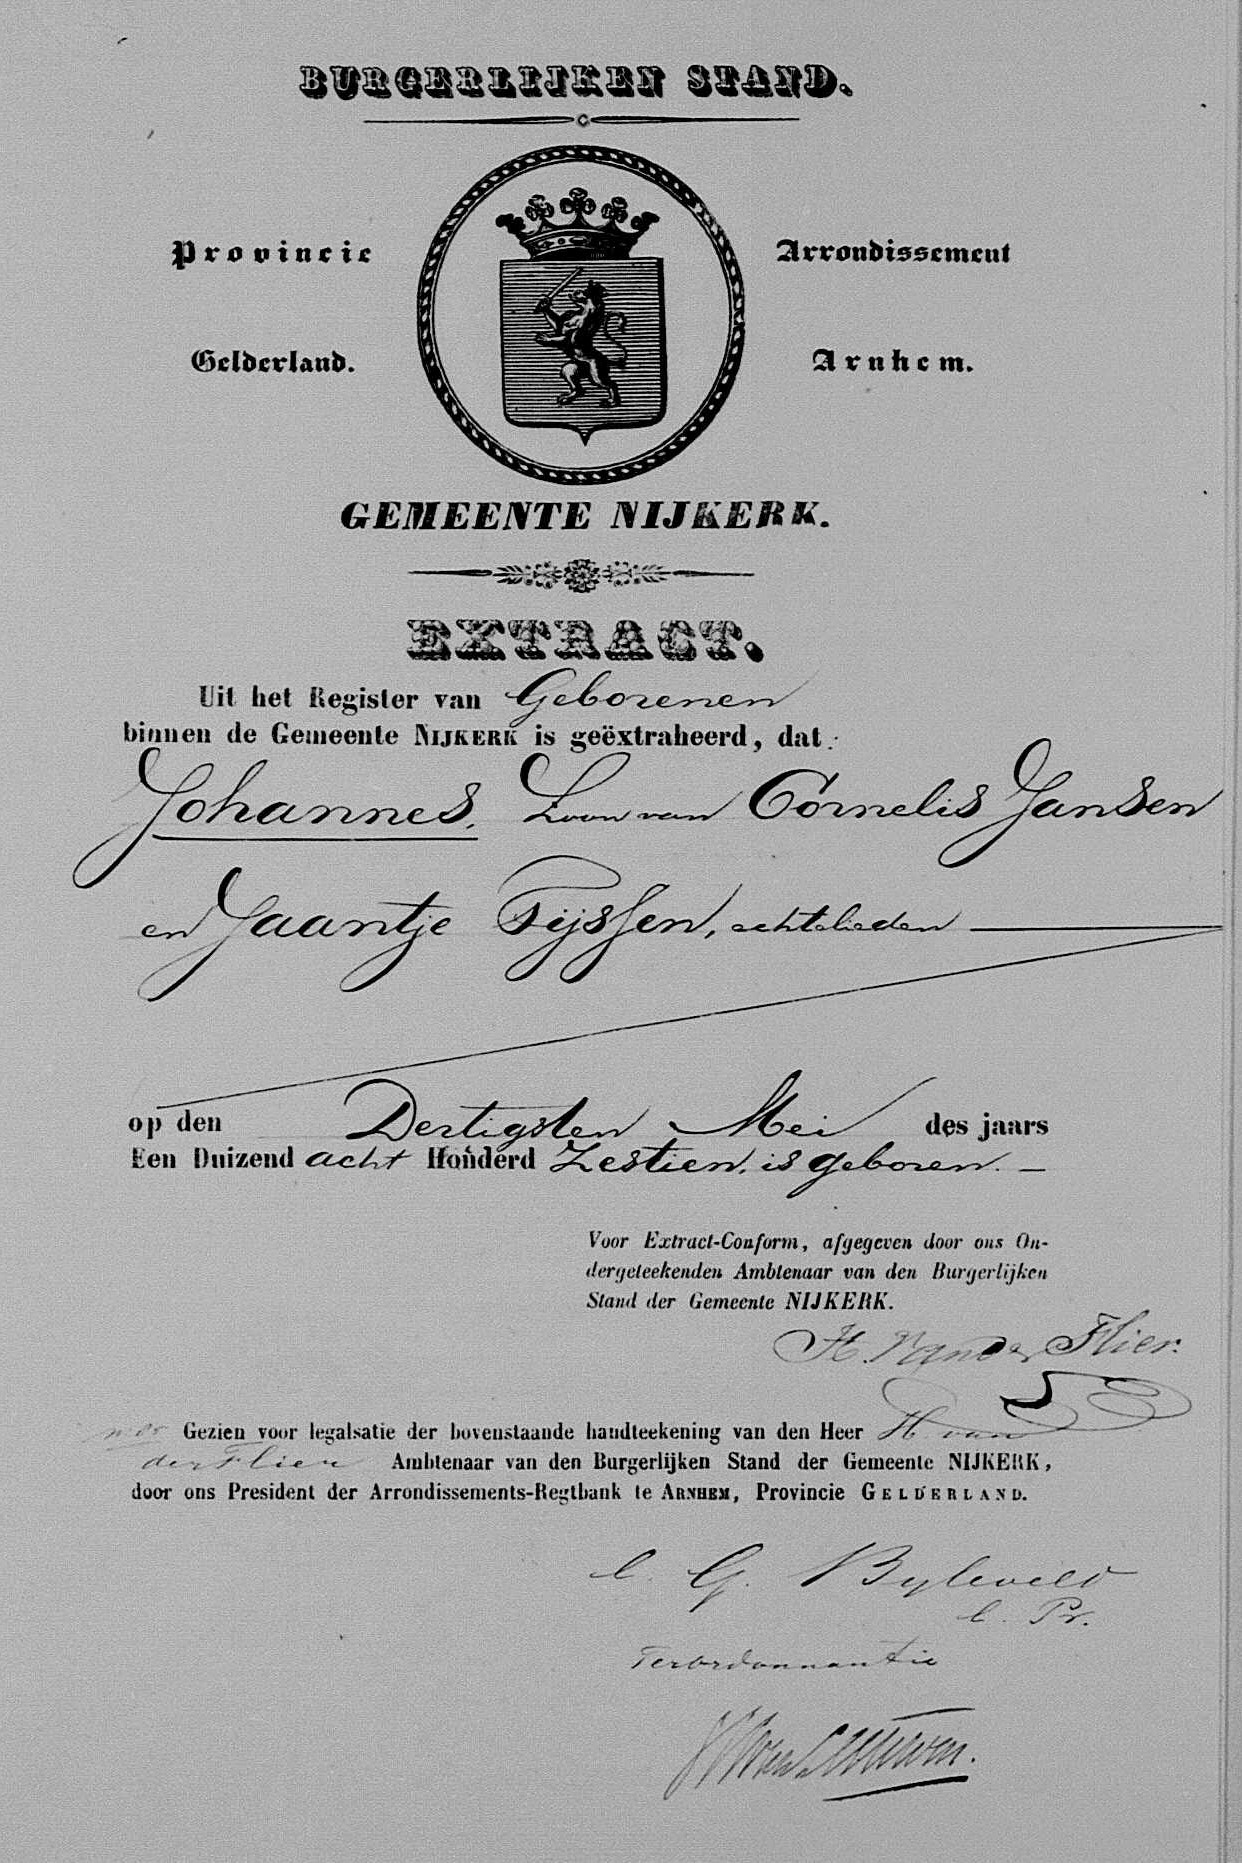 BURGERLIJKEN STAND.
Provincie Arrondissement
Gelderland. Arnhem.
GEMEENTE NIJKERK.
EXTRACT.
Uit het Register van Geborenen
binnen de Gemeente NIJKERK is geëxtraheerd, dat:
Johannes, Zoon van Cornelis Jansen
en Jaantje Tijssen, echtelieden
op den Dertigsten Mei des jaars
Een Duizend acht Honderd Zestien, is geboren.
Voor Extract-Conform, afgegeven door ons On-
dergeteekenden Ambtenaar van den Burgerlijken
Stand der Gemeente NIJKERK.
H. van der Flier.
Gezien voor legalsatie der bovenstaande handteekening van den Heer H. van
der Flier Ambtenaar van den Burgerlijken Stand der Gemeente NIJKERK,
door ons President der Arrondissements-Regtbank te ARNHEM, Provincie GELDERLAND.
C. G. Byleveld
Pr.
Ter ordonnantie